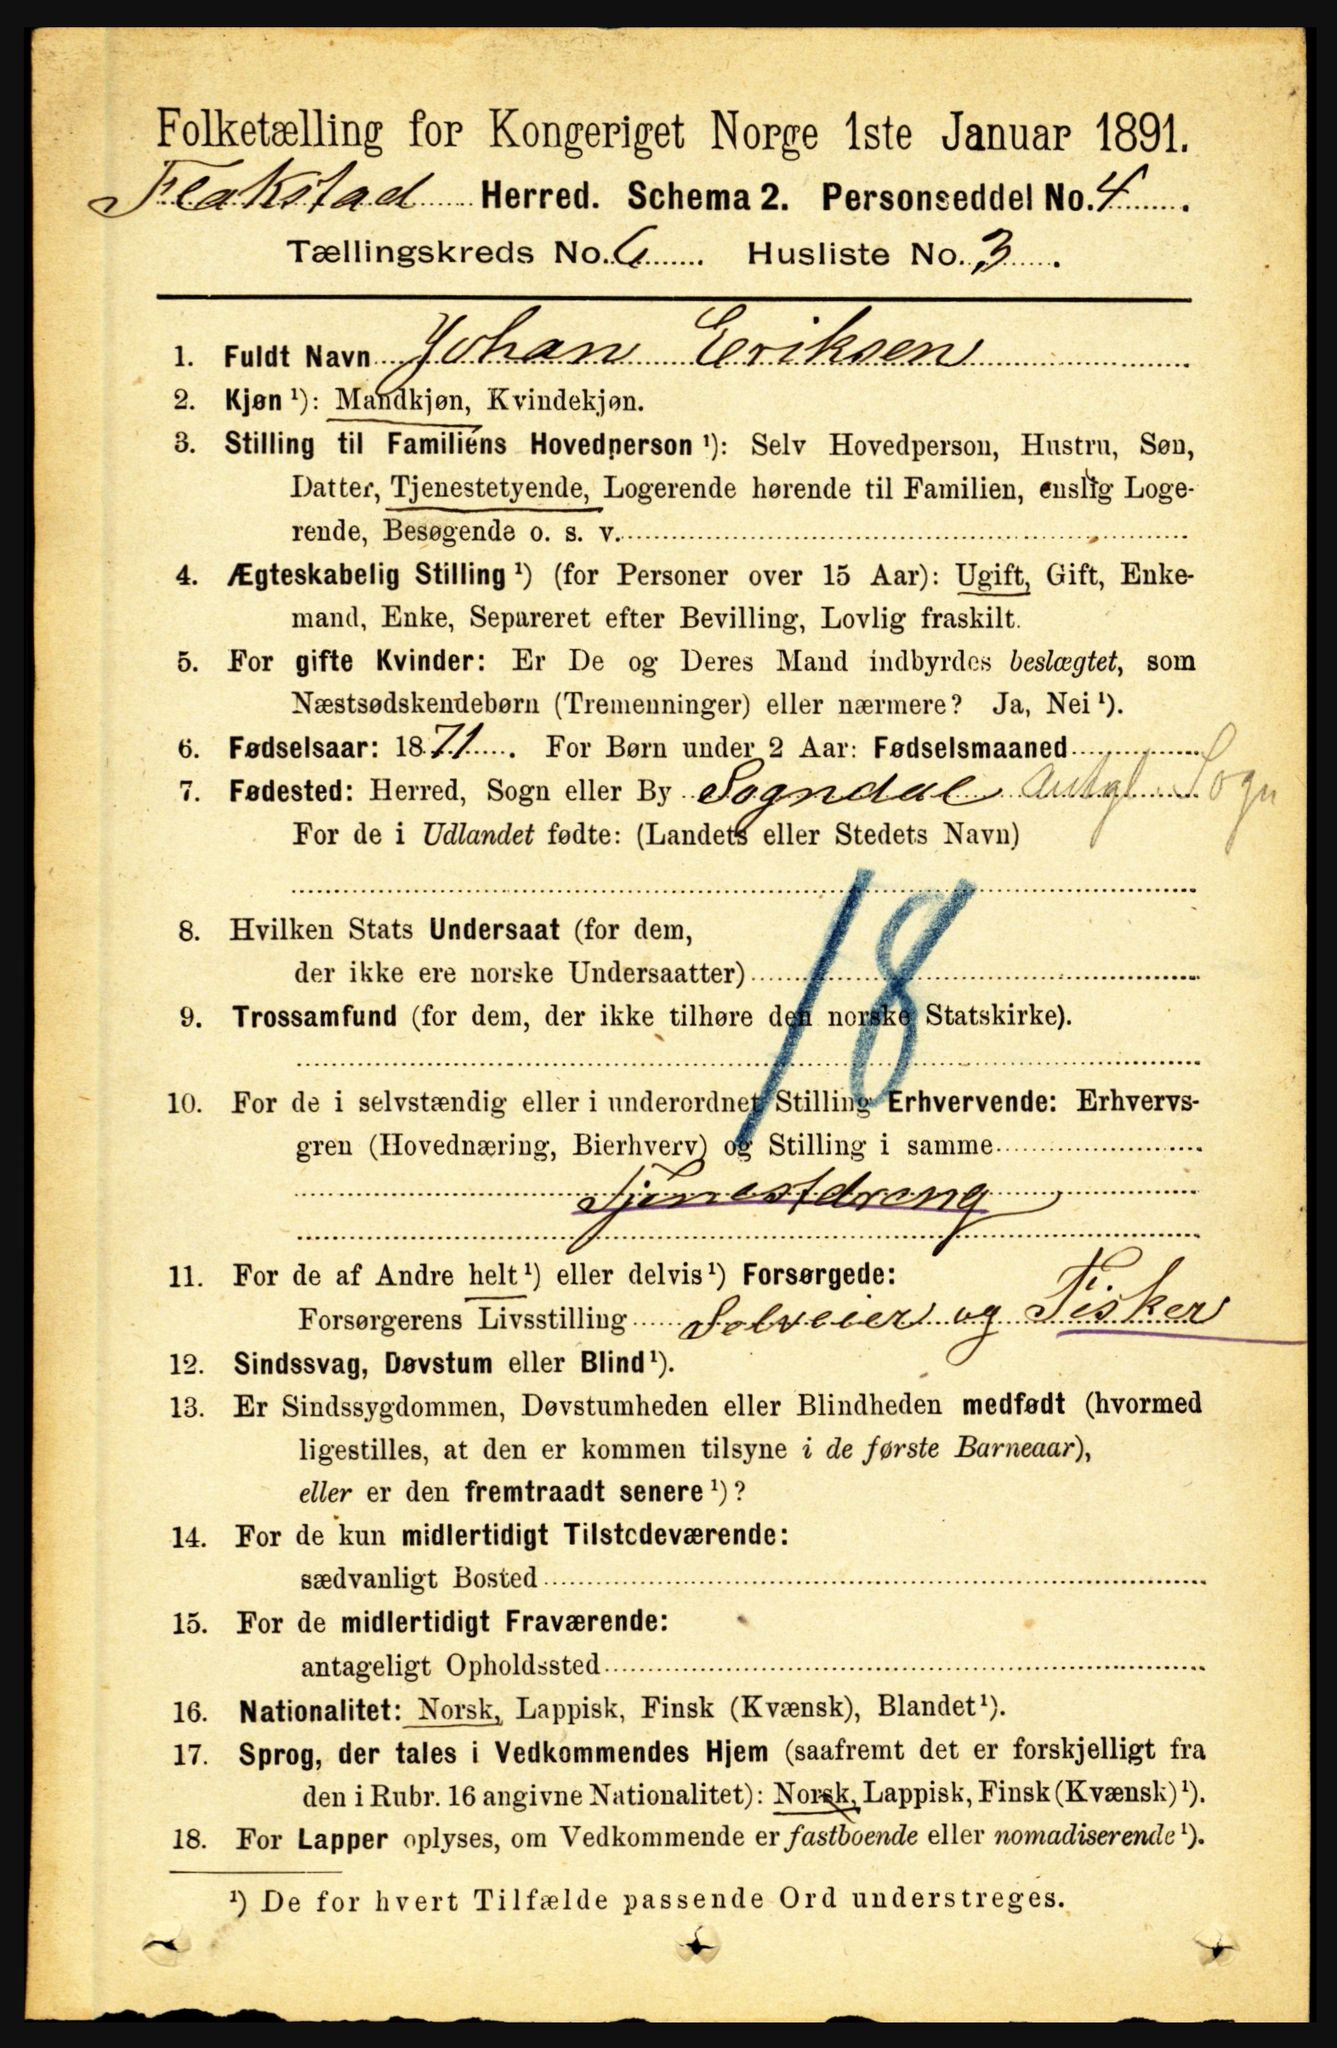 Folketælling for Kongeriget Norge 1ste Januar 1891.
Flakstad Herred. Schema 2. Personseddel No. 4.
Tællingskreds No. 6. Husliste No. 3.
1. Fuldt Navn Johan Eriksen
2. Kjøn ¹): Mandkjøn, Kvindekjøn.
3. Stilling til Familiens Hovedperson ¹): Selv Hovedperson, Hustru, Søn,
Datter, Tjenestetyende, Logerende hørende til Familien, enslig Loge-
rende, Besøgende o. s. v.
4. Ægteskabelig Stilling ¹) (for Personer over 15 Aar): Ugift, Gift, Enke-
mand, Enke, Separeret efter Bevilling, Lovlig fraskilt.
5. For gifte Kvinder: Er De og Deres Mand indbyrdes beslægtet, som
Næstsødskendebørn (Tremenninger) eller nærmere? Ja, Nei ¹).
6. Fødselsaar: 1871. For Børn under 2 Aar: Fødselsmaaned
7. Fødested: Herred, Sogn eller By Sogndal Antgl. Sogn
For de i Udlandet fødte: (Landets eller Stedets Navn)
18
8. Hvilken Stats Undersaat (for dem,
der ikke ere norske Undersaatter)
9. Trossamfund (for dem, der ikke tilhøre den norske Statskirke).
10. For de i selvstændig eller i underordnet Stilling Erhvervende: Erhvervs-
gren (Hovednæring, Bierhverv) og Stilling i samme
Tjenestdreng
11. For de af Andre helt ¹) eller delvis ¹) Forsørgede:
Forsørgerens Livsstilling Selveier og Fisker
12. Sindssvag, Døvstum eller Blind ¹).
13. Er Sindssygdommen, Døvstumheden eller Blindheden medfødt (hvormed
ligestilles, at den er kommen tilsyne i de første Barneaar),
eller er den fremtraadt senere ¹)?
14. For de kun midlertidigt Tilstedeværende:
sædvanligt Bosted
15. For de midlertidigt Fraværende:
antageligt Opholdssted
16. Nationalitet: Norsk, Lappisk, Finsk (Kvænsk), Blandet ¹).
17. Sprog, der tales i Vedkommendes Hjem (saafremt det er forskjelligt fra
den i Rubr. 16 angivne Nationalitet): Norsk, Lappisk, Finsk (Kvænsk) ¹).
18. For Lapper oplyses, om Vedkommende er fastboende eller nomadiserende ¹).
¹) De for hvert Tilfælde passende Ord understreges.